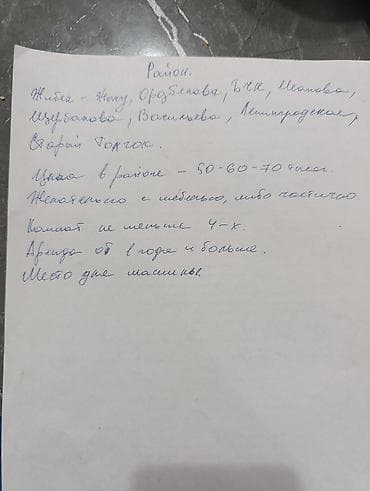 Район.
Жибек - Жолу, Орозбекова, БЧК, Исанова,
Щербакова, Васильева, Ленинградская,
Старый Толчок.
Цена в районе - 50-60-70 тысяч
Желательно с мебелью, либо частично
Комнат не меньше 4-х.
Аренда от 1 года и больше.
Место для машины.